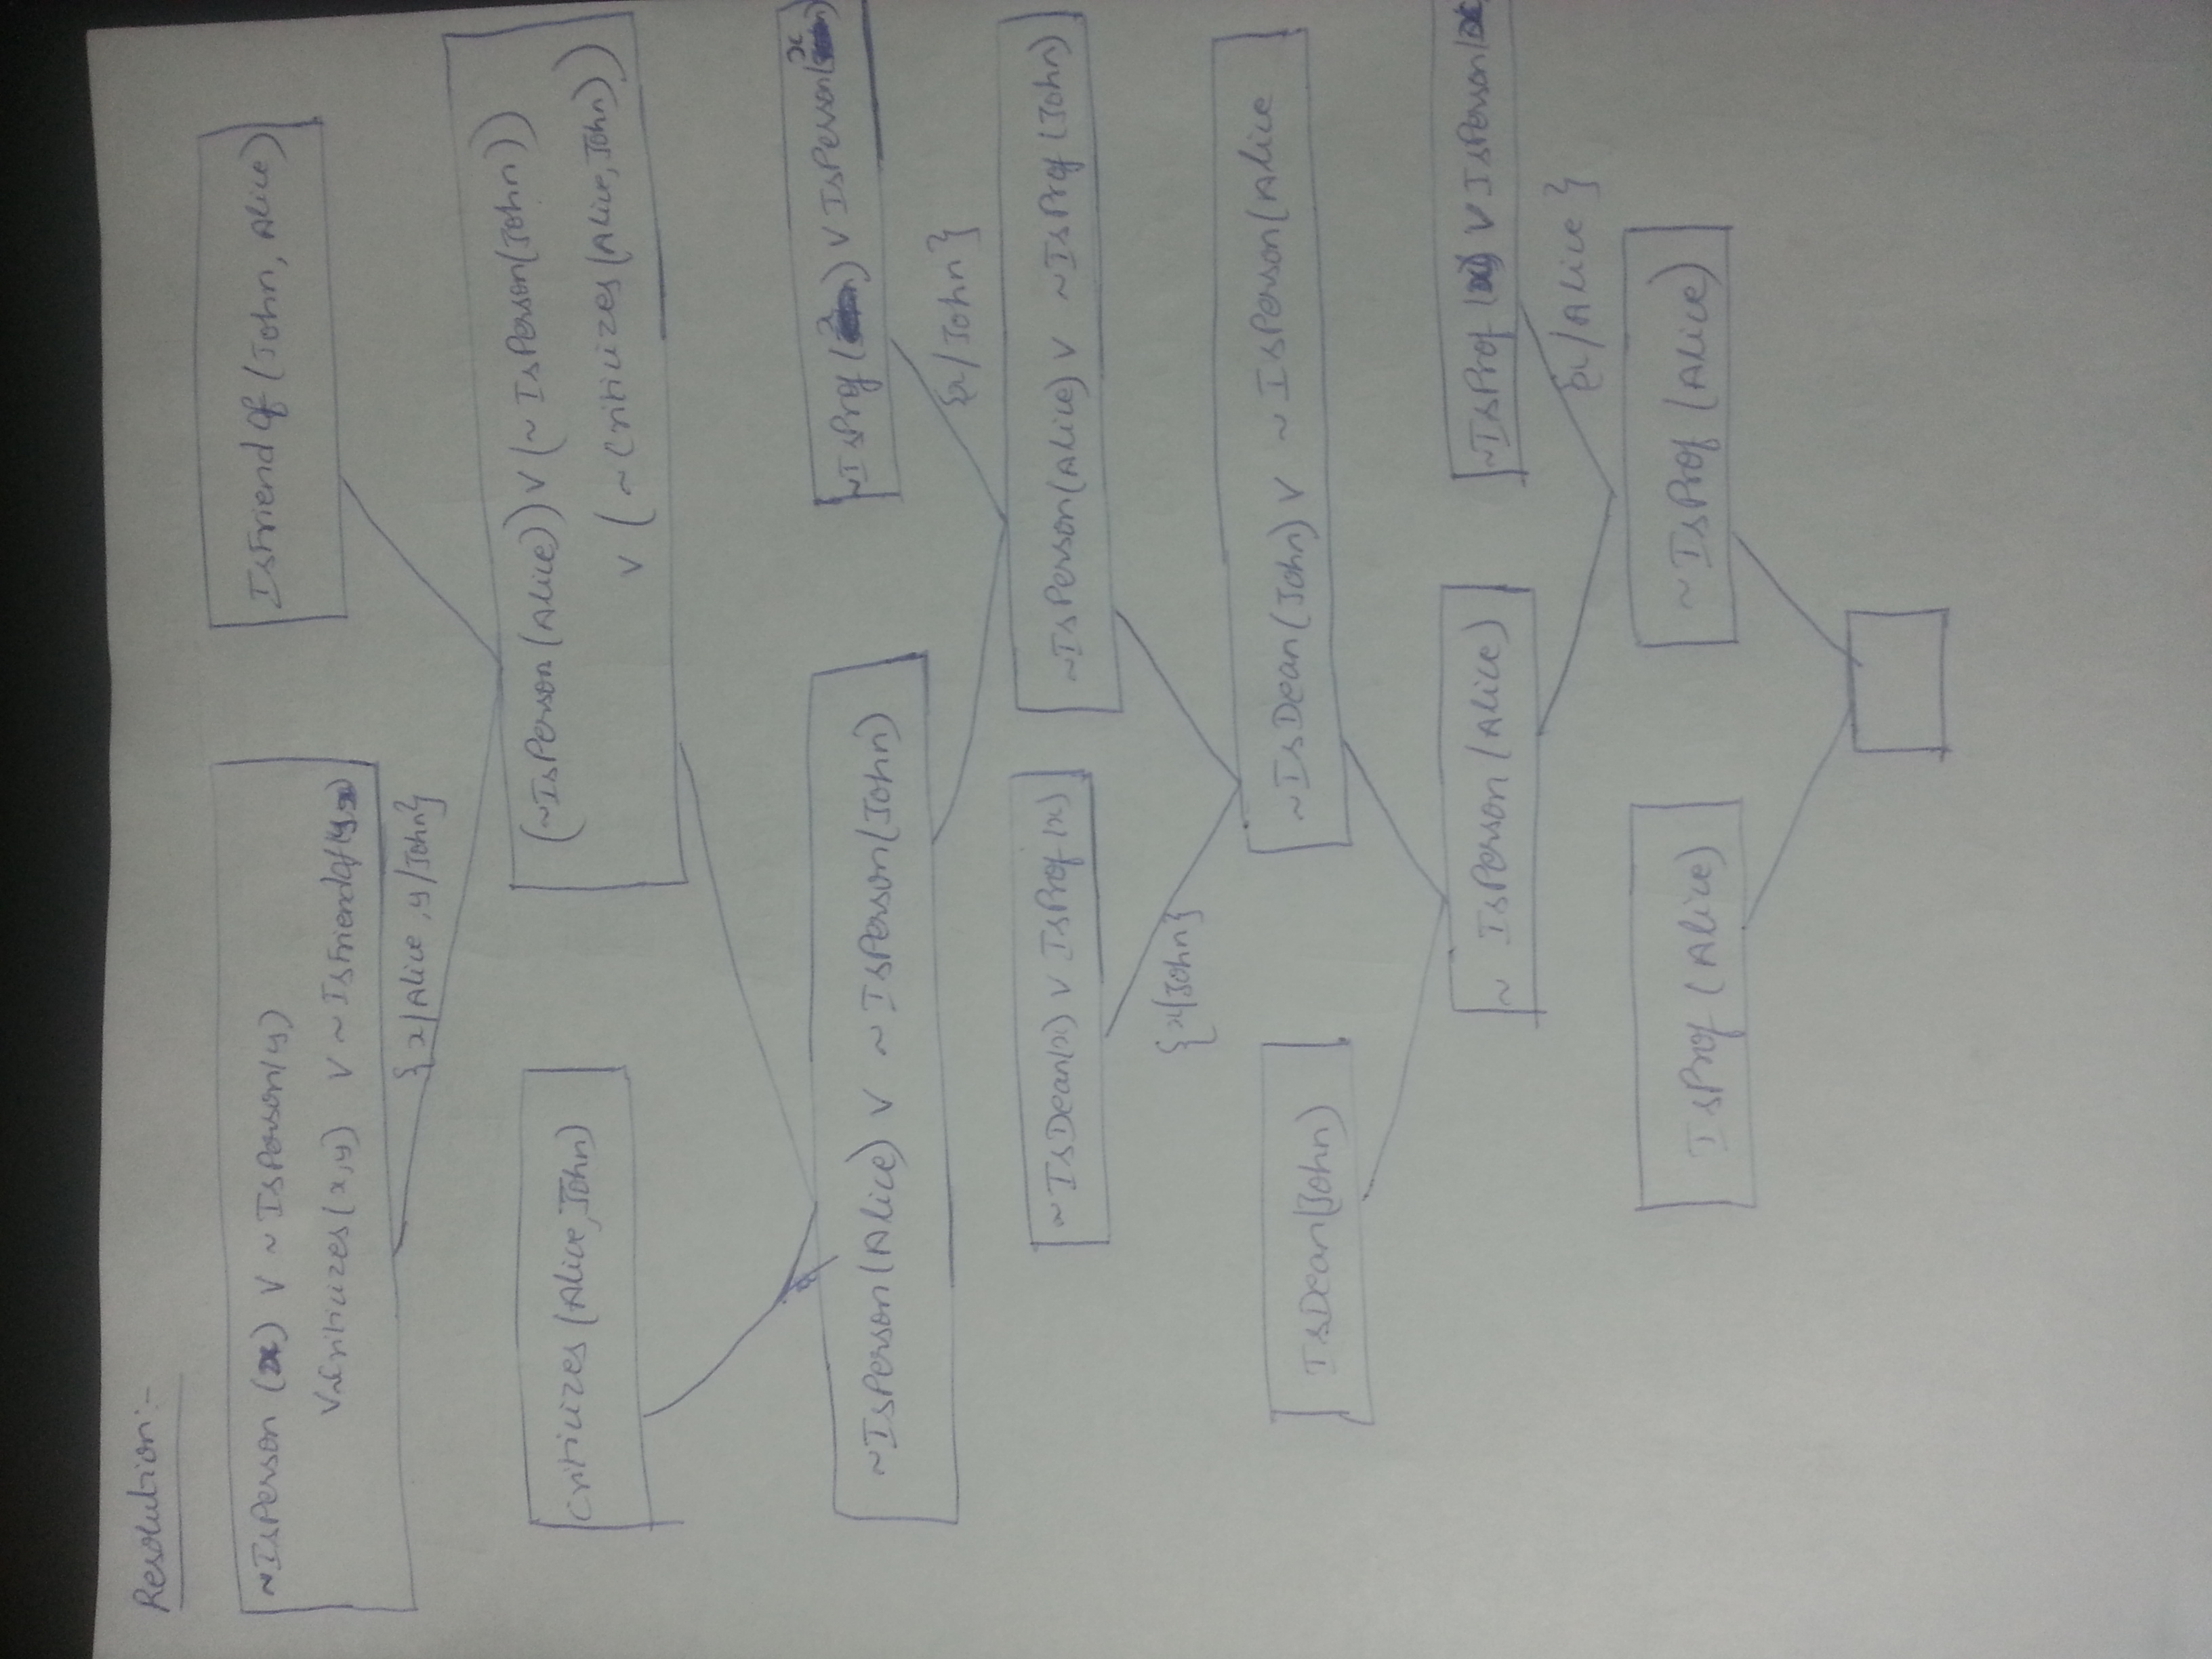 Resolution:-
~IsPerson (x) V ~ IsPerson(y)
V~Criticizes(x,y) V ~ IsFriendOf(y,x)
IsFriendOf (John, Alice)
{x/Alice, y/John}
(~IsPerson(Alice)) V (~IsPerson(John))
V (~Criticizes(Alice, John))
Criticizes (Alice, John)
~IsPerson(Alice) V ~ IsPerson(John)
~IsProf( ) V IsPerson( x )
{x/John}
~IsDean(x) V IsProf(x)
~IsPerson(Alice) V ~IsProf (John)
{x/John}
IsDean(John)
~IsDean(John) V ~ IsPerson(Alice
~ IsPerson(Alice)
~IsProf (x) V IsPerson(x
{x/Alice}
IsProf (Alice)
~IsProf (Alice)